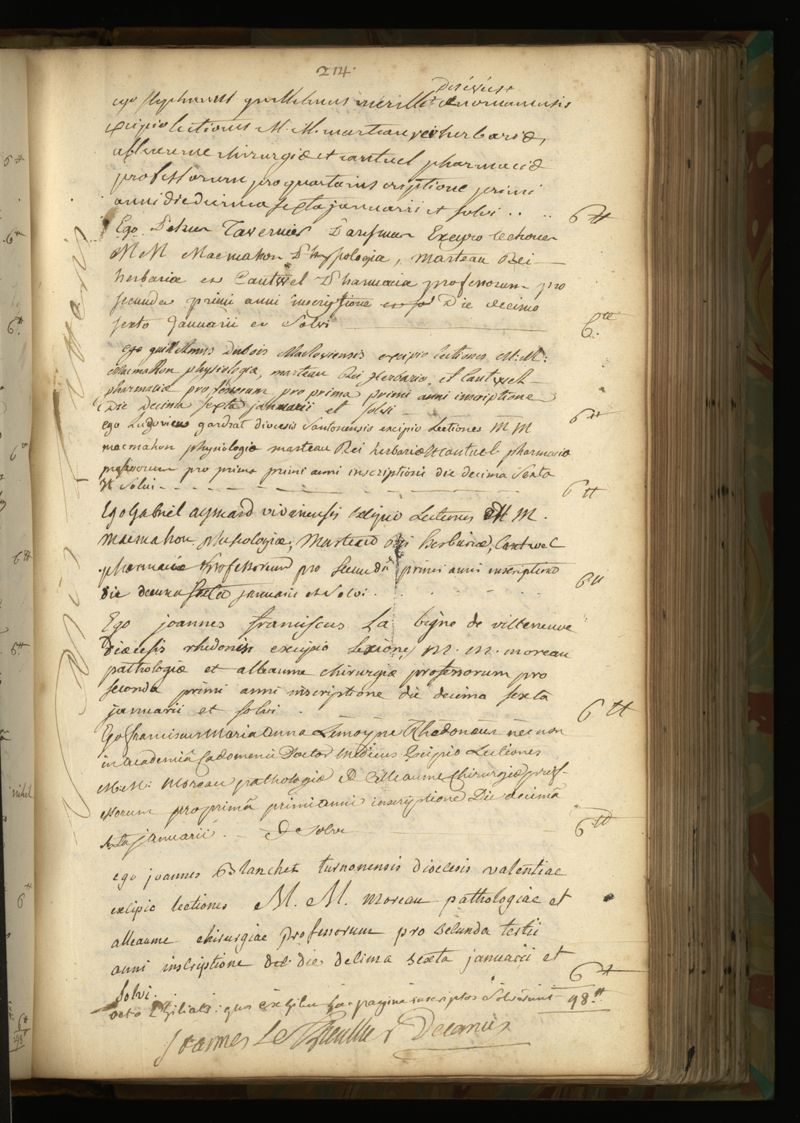 214
diocesis
ego stephanus guillelmus merille cenomanensis
excipio lectiones M. M. marteau rei herbariæ,
alleaume chirurgiæ et cantuel pharmaciæ
professorum pro quarta inscriptione primi
anni die decima sexta januarii et solvi . . . . 6 ₶
Ego Petrus Tavernier Excipio lectiones
M M Macmahon Physpologia, Marteau Rei
herbariæ et Cantwel Pharmacia professorum pro
secunda primi anni inscriptione Die decimo
sexto Januarii et Solvi 6.₶
ego guillelmus Dubois Macloviensis excipio lectiones M. M.
Macmahon physiologia, marteau Rei Herbario, et Cantwel
pharmacia professorum pro prima primi anni inscriptione
Die Decima sexta januarii et solvi 6 ₶
ego Ludovicus gardrat diocesis Santonensis excipio Lectiones M M
macmahon physiologia marteau Rei herbariæ et cantuel pharmacia
professorum pro prima primi anni inscriptioni die decima Sexta
et Solvi 6 ₶
Ego Gabriel aymard vivariensis Excipio Lectiones M M.
Macmahon phisiologiæ, Marteau rei herbariæ, Cantwel
pharmaciæ Professorum pro secundâ primi anni inscriptione
die decima sexta januarii et Solvi . 6 ₶
Ego joannes franciscus La bigne de villeneuve
diœcesis rhedonensis excipio Lexiones m. m. moreau
pathologiæ et alleaume chirurgiæ professorum pro
seconda primi anni inscriptione die decima sexta
januarii et solvi . 6 ₶
Ego franciscus Maria anna Lemoyne Rhedonæus nec non
in academiâ Cadomensi Doctor Medicus Excipio Lectiones
M. M. Moreau pathologiæ et Alleaume Chirurgiæ prof-
essorum pro primâ primi anni inscriptione Die decimâ
sexta januarii . Et Solvi 6 ₶
ego joannes Blanchet turnonensis dioecesis valentiae
excipio lectiones M. M. moreau pathologiae et
alleaume chirurgiae professorum pro secunda tertii
anni inscriptione die decima sexta januarii et
solvi . 6 ₶
octo quos exhibet hæc pagina inscriptos Solverunt 48 ₶
Joannes Le Thieullier Decanus